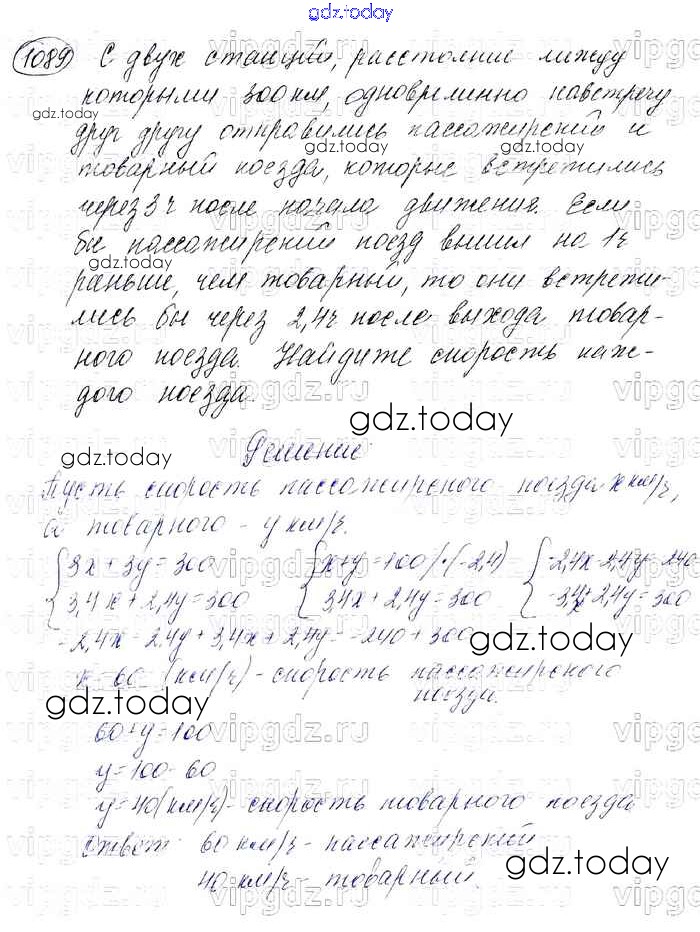 gdz.today
1089 С двух станций, расстояние между
которыми 300 км, одновременно навстречу
друг другу отправились пассажирский и
товарный поезда, которые встретились
через 3 ч после начала движения. Если
бы пассажирский поезд вышел на 1 ч
раньше, чем товарный, то они встрети-
лись бы через 2,4 ч после выхода товар-
ного поезда. Найдите скорость каж-
дого поезда.
Решение:
Пусть скорость пассажирского поезда x км/ч,
а товарного - y км/ч.
{3x + 3y = 300 {x+y = 100 /·(-2,4) {-2,4x-2,4y=-240
{3,4x + 2,4y = 300 {3,4x + 2,4y = 300 {3,4x+2,4y = 300
-2,4x - 2,4y + 3,4x + 2,4y = -240 + 300
x = 60 (км/ч) - скорость пассажирского
поезда.
60+y=100
y=100-60
y=40(км/ч) - скорость товарного поезда
Ответ: 60 км/ч - пассажирский
40 км/ч - товарный.
gdz.today
gdz.today
gdz.today
gdz.today
gdz.today
gdz.today
gdz.today
gdz.today